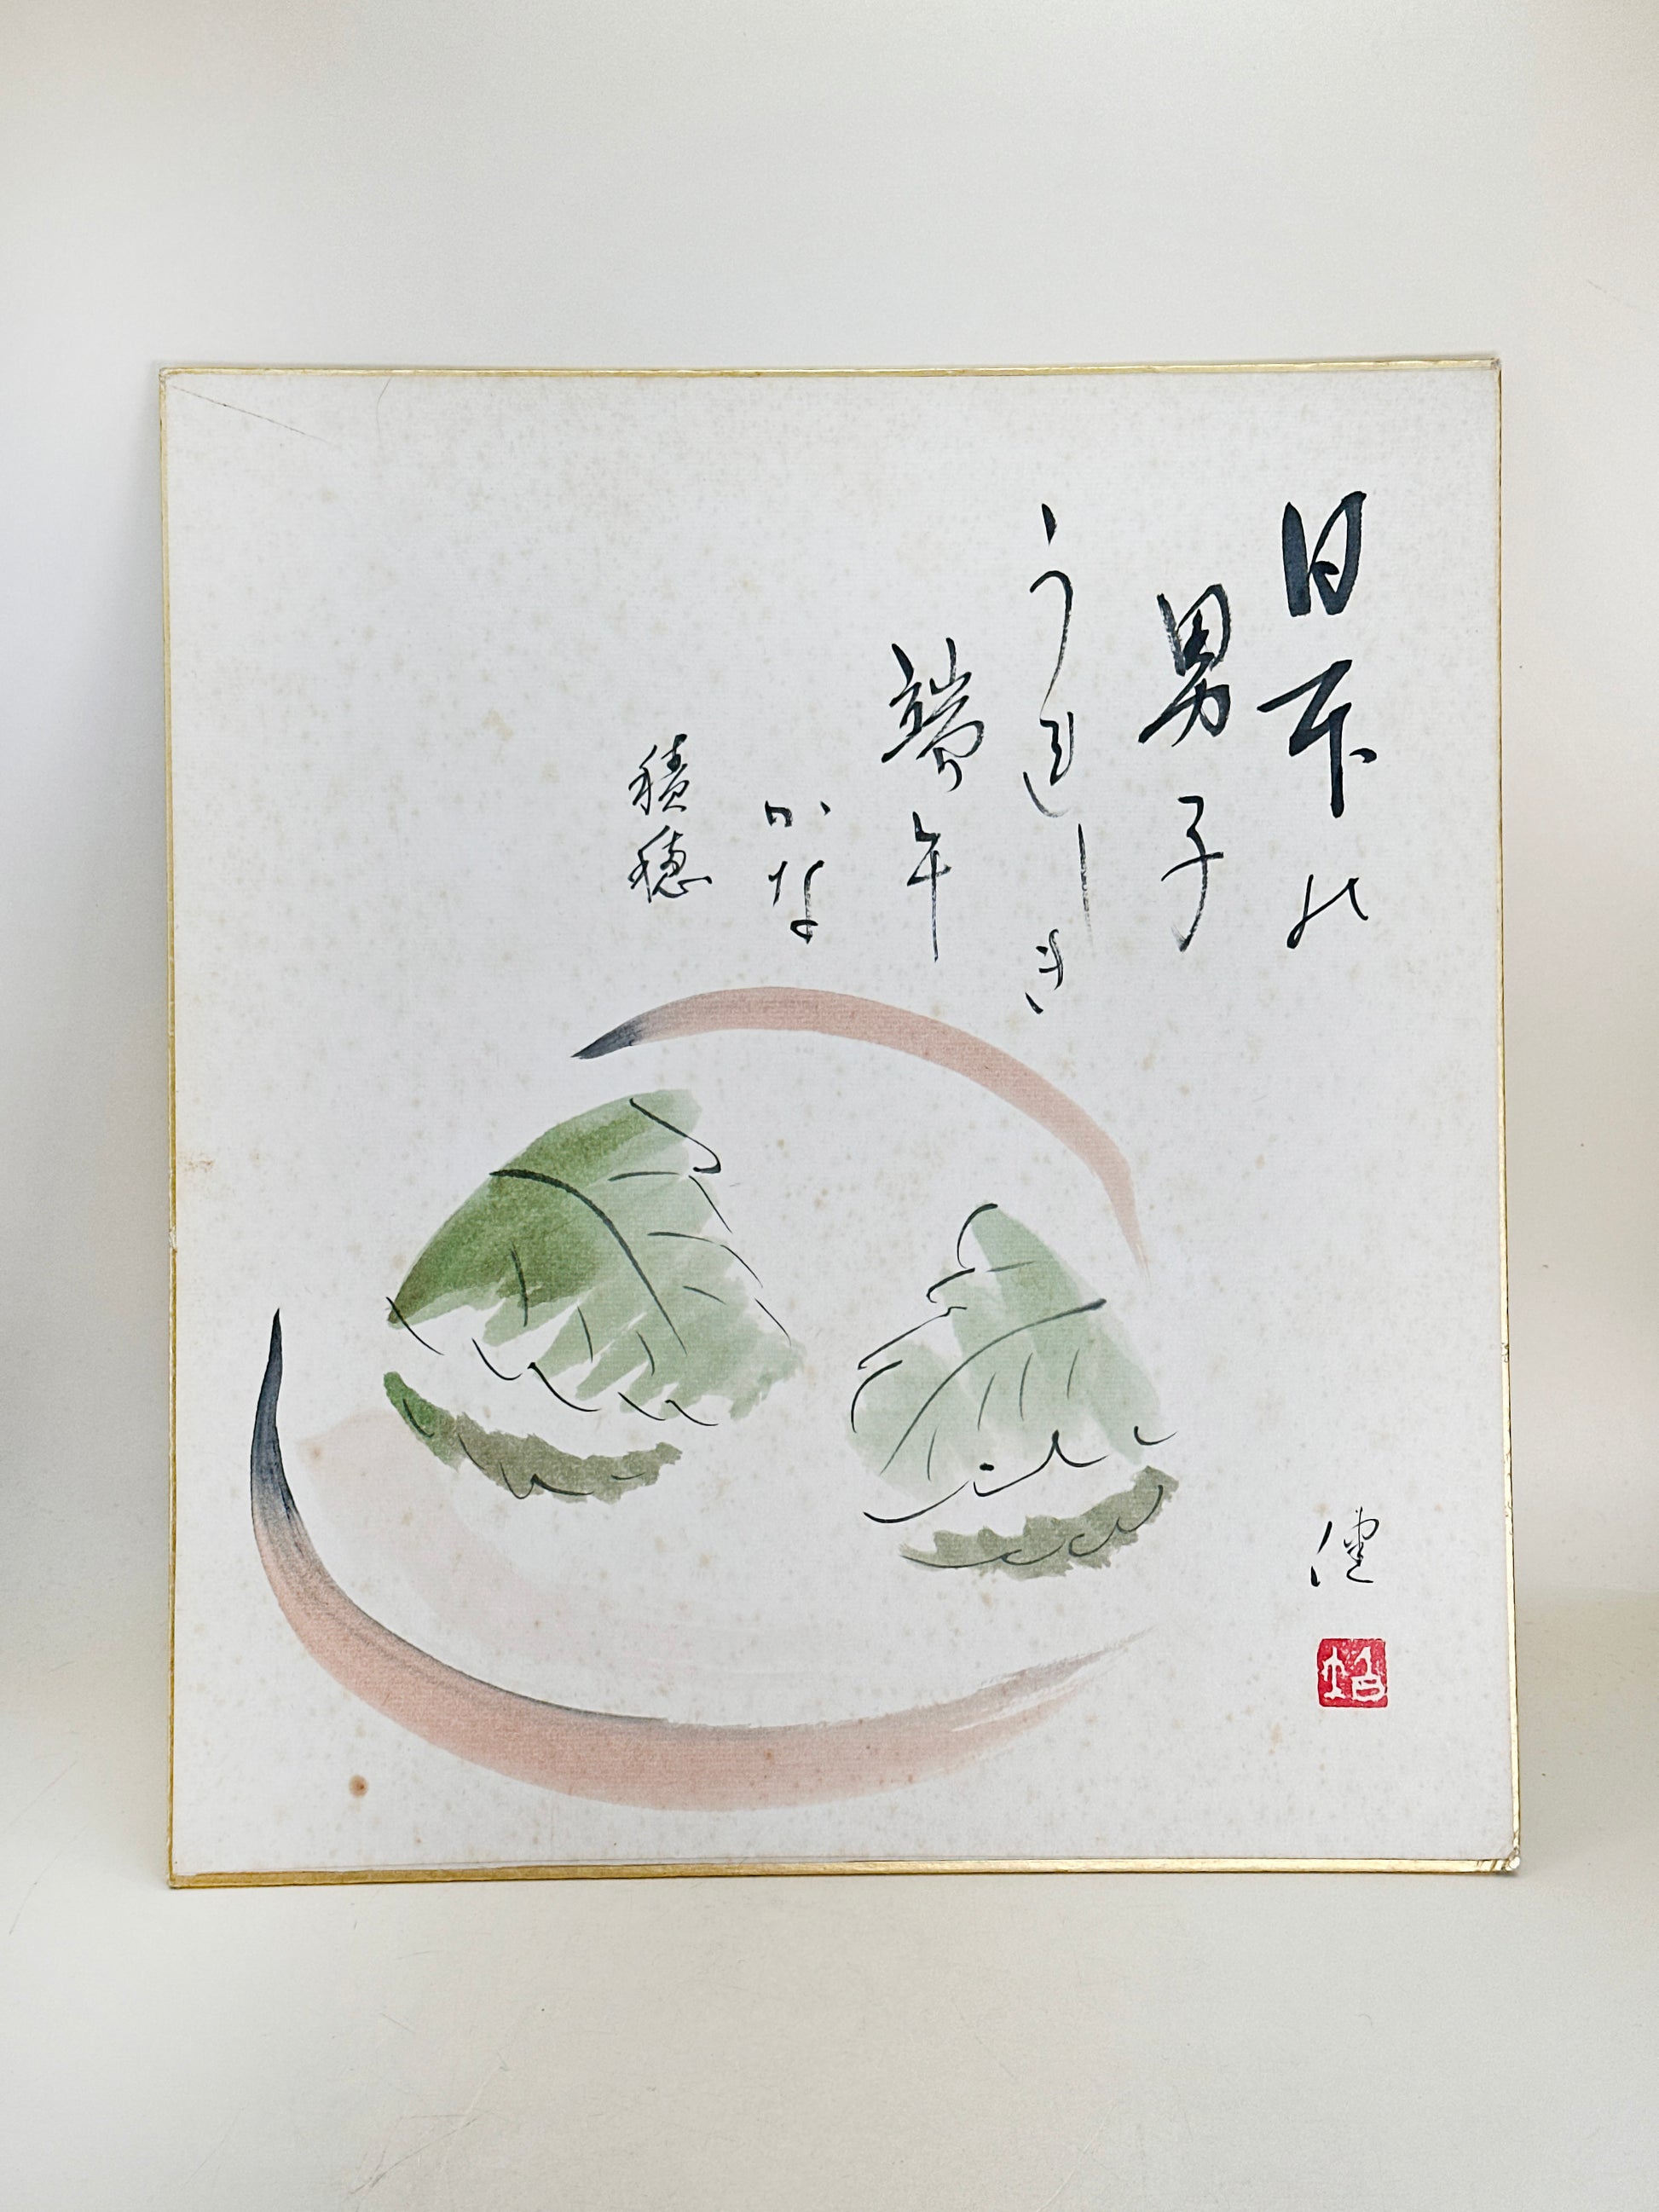 日本の
男子
うれしき
端午
かな
積穂